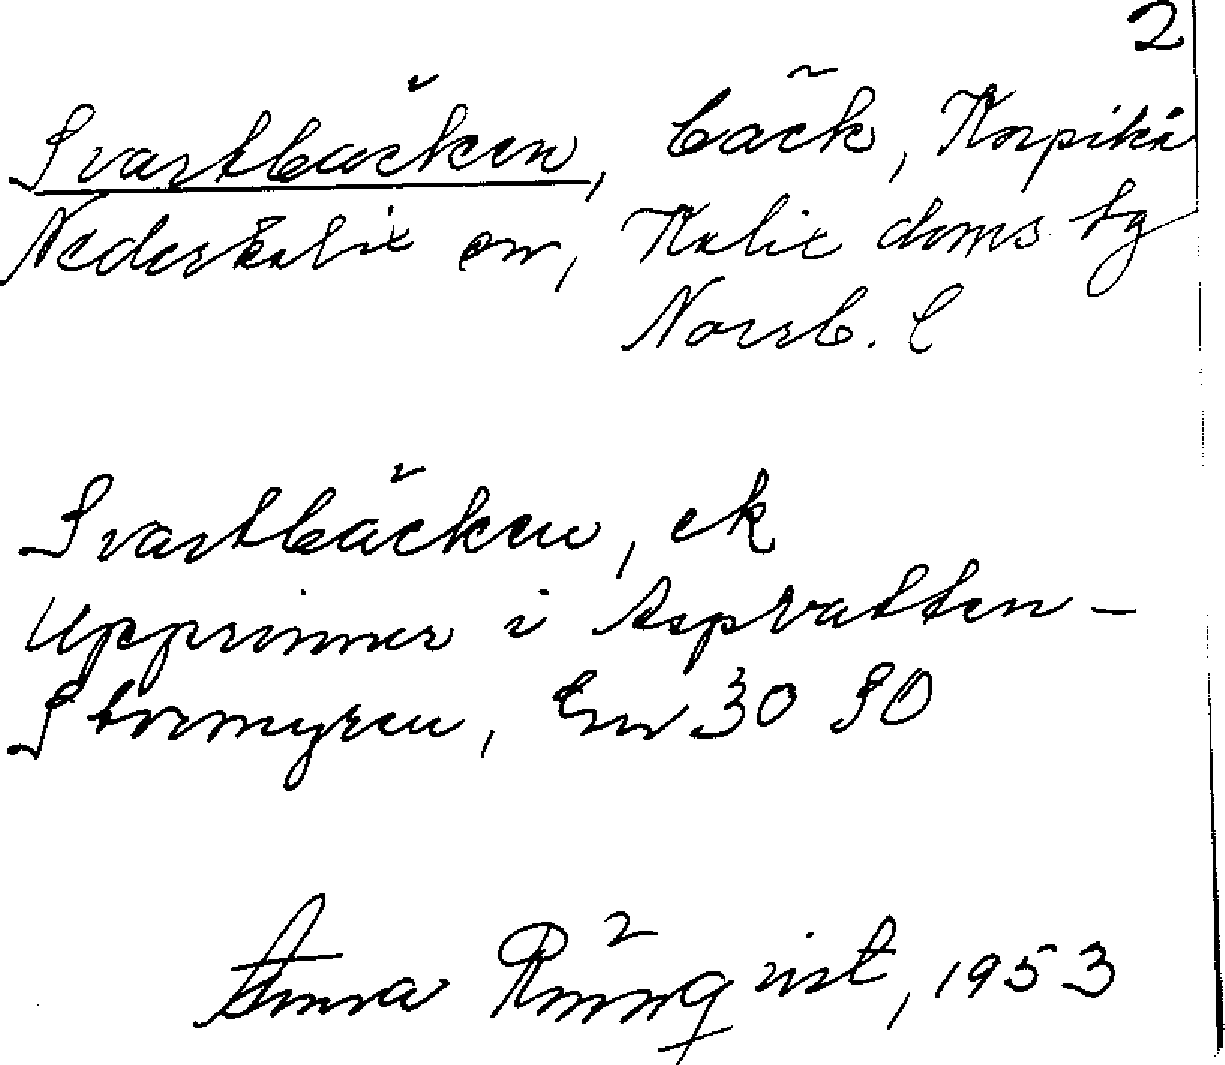 2
Svartbäcken, bäck, Korpikå
Nederkalix sn, Kalix doms. tg
Norrb. l
Svartbäcken, ek
Upprinner i Aspvatten-
Stormyren, En 30 SO
Anna Rönnqvist, 1953